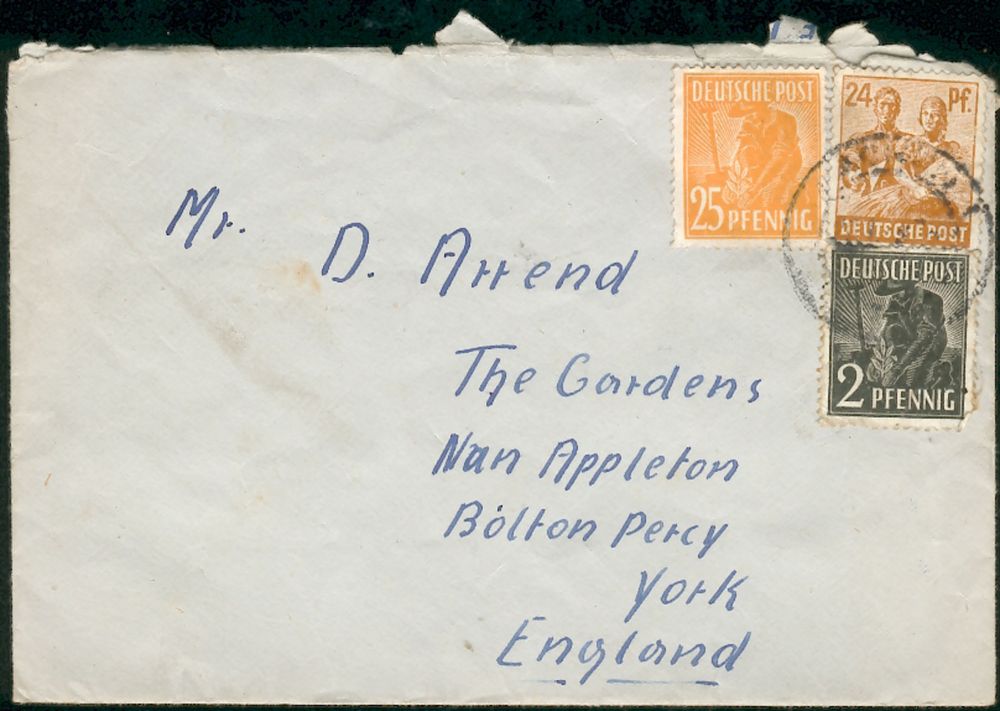 DEUTSCHE POST
25 PFENNIG
24 Pf.
DEUTSCHE POST
DEUTSCHE POST
2 PFENNIG
Mr. D. Attend
The Gardens
Nan Appleton
Bolton Percy
York
England